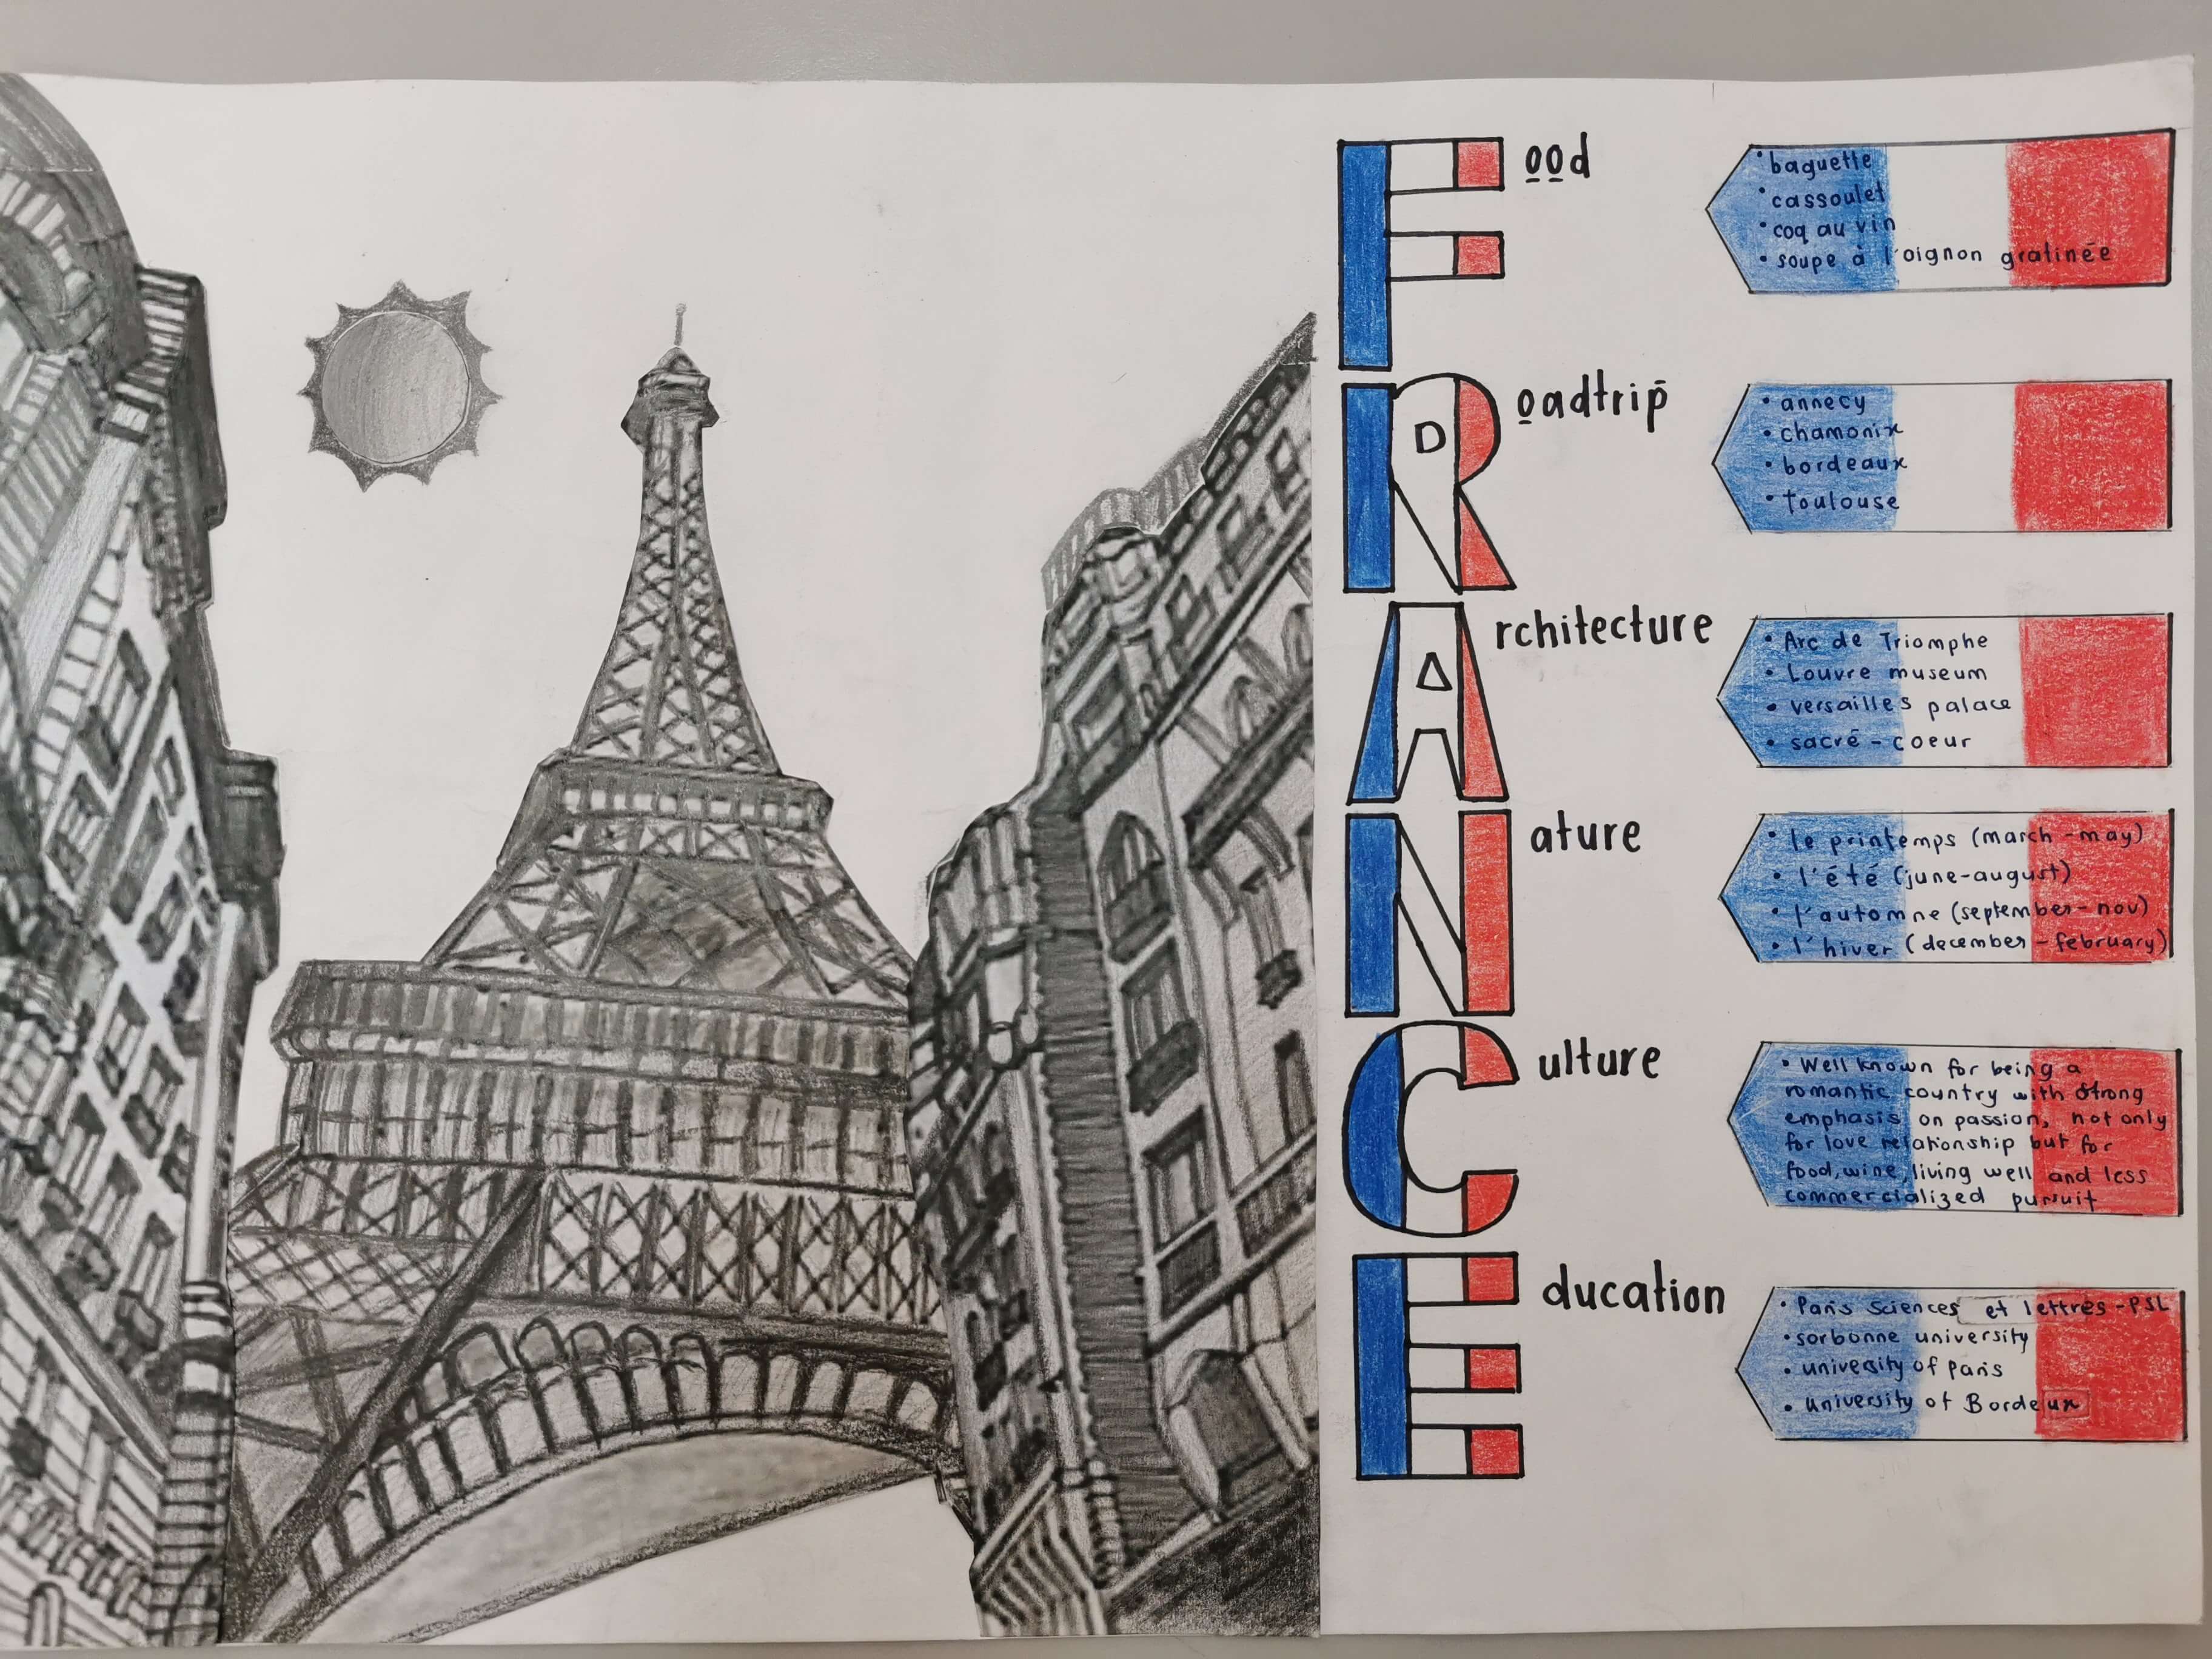 Food
• baguette
• cassoulet
• coq au vin
• soupe à l'oignon gratinée
Roadtrip
• annecy
• chamonix
• bordeaux
• toulouse
Architecture
• Arc de Triomphe
• Louvre museum
• versailles palace
• sacré-coeur
Nature
• le printemps (march-may)
• l'été (june-august)
• l'automne (september-nov)
• l'hiver (december-february)
Culture
• Well known for being a
romantic country with strong
emphasis on passion, not only
for love relationship but for
food, wine, living well and less
commercialized pursuit
Education
• Paris Sciences et lettres-PSL
• sorbonne university
• university of Paris
• university of Bordeux